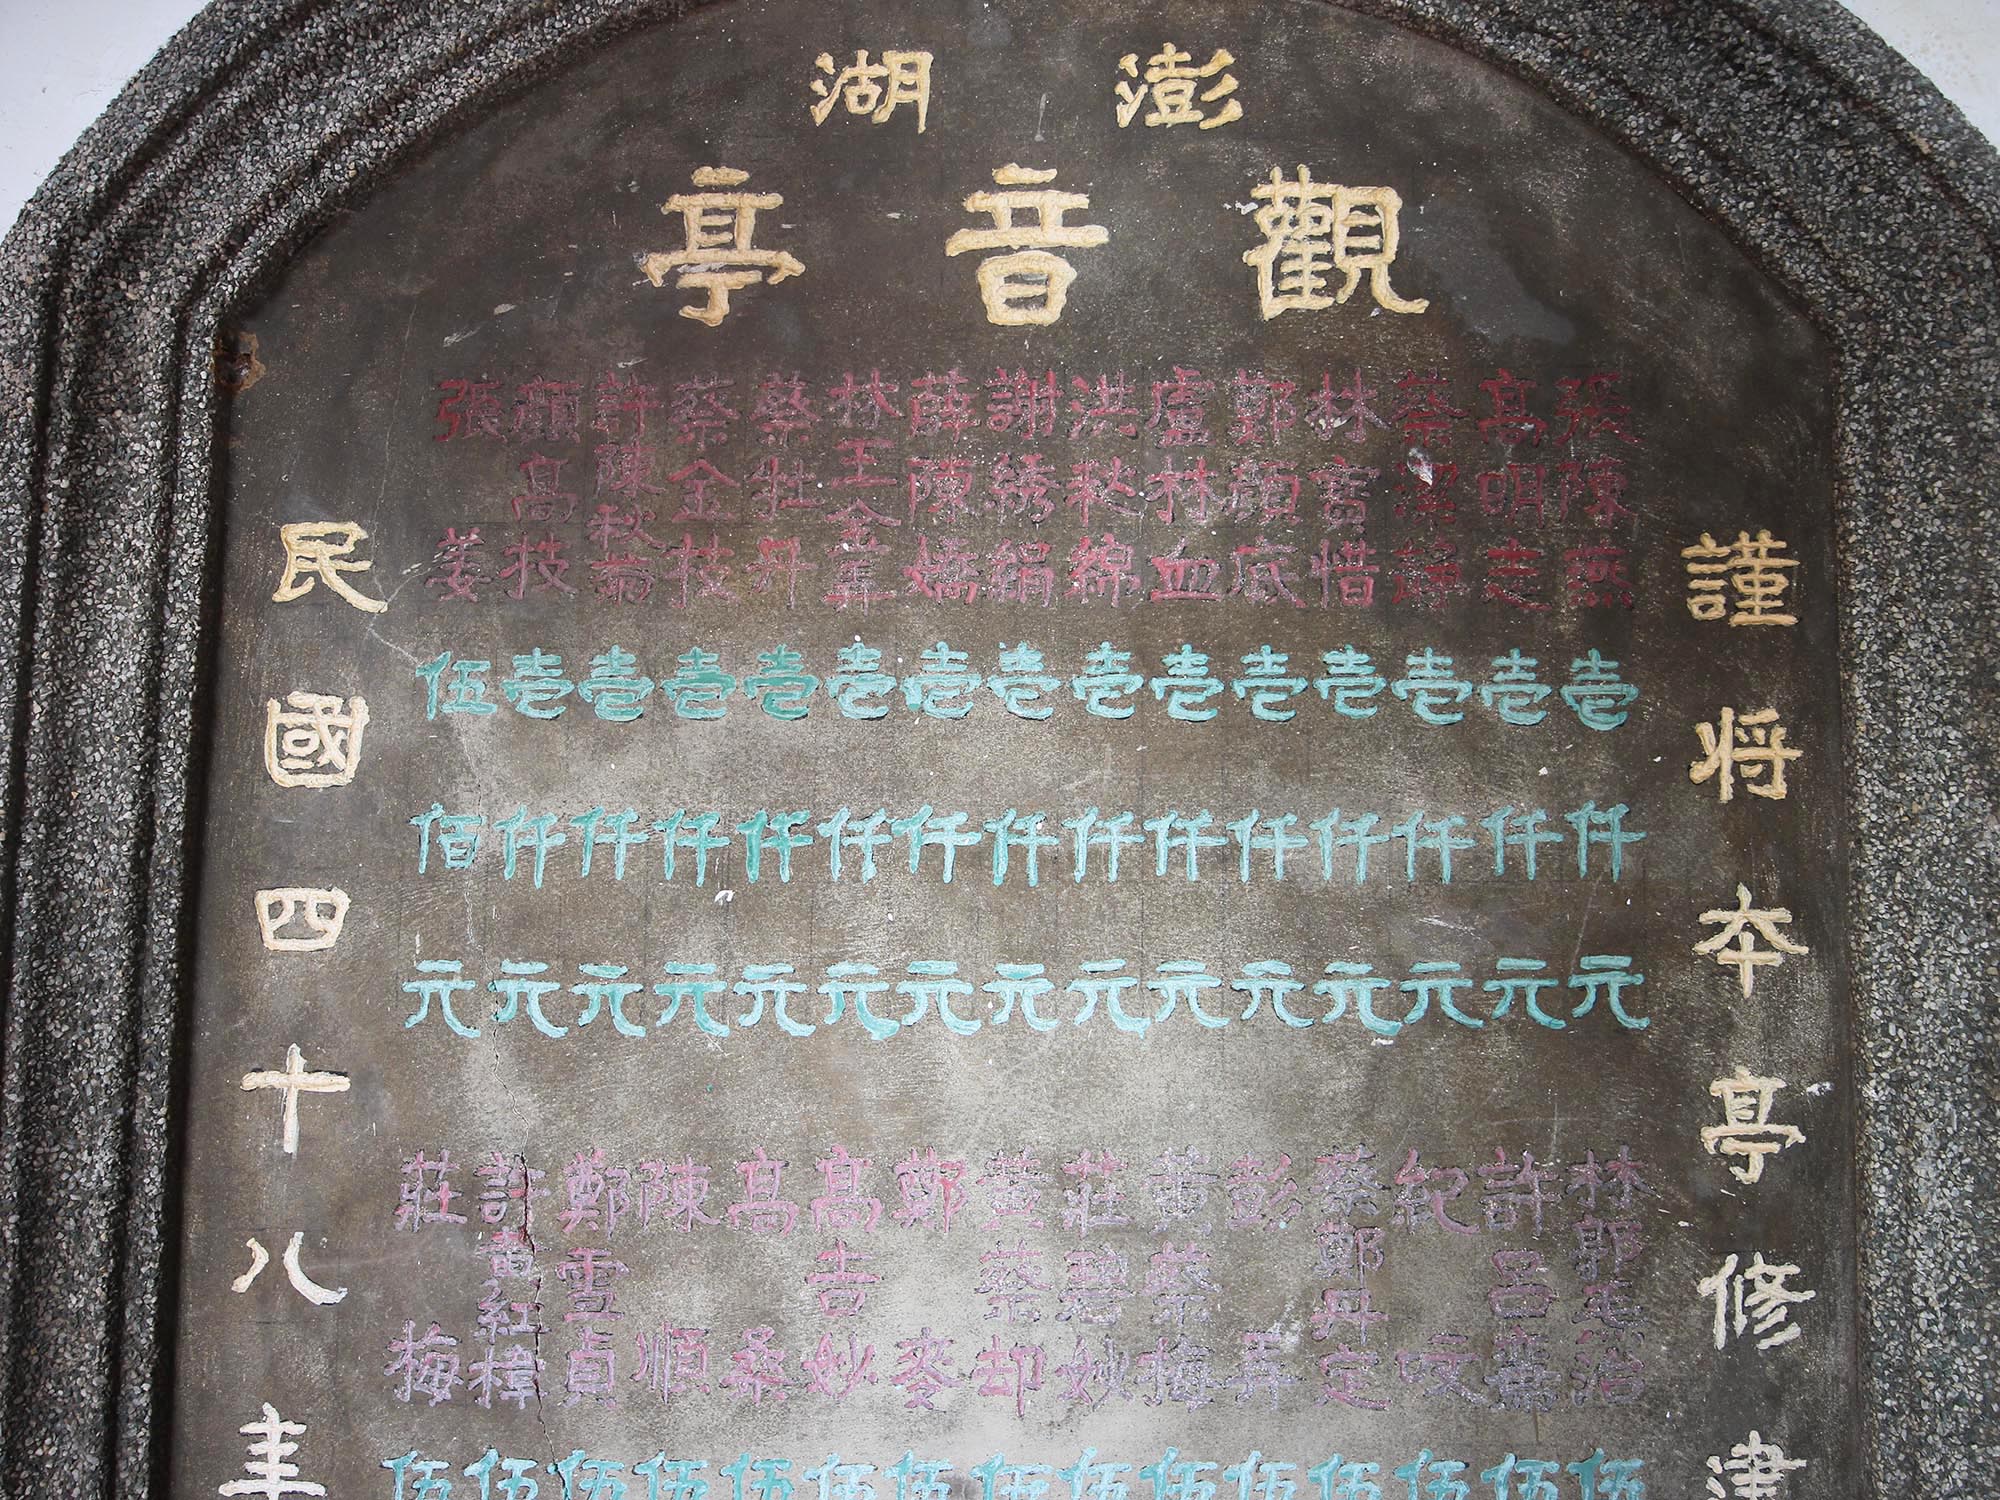 澎湖
觀音亭
謹將本亭修建
張陳燕 壹仟元
高明走 壹仟元
蔡潔靜 壹仟元
林寶惜 壹仟元
鄭顏底 壹仟元
盧林血 壹仟元
洪秋綿 壹仟元
謝綉絹 壹仟元
薛陳嬌 壹仟元
林王金 壹仟元
蔡牡丹 壹仟元
蔡金枝 壹仟元
許陳秋菊 壹仟元
顏高技 壹仟元
張姜 伍佰元
林郭 治 伍
許呂 伍
紀 伍
蔡鄭丹定 伍
彭弄 伍
黃蔡梅 伍
莊碧妙 伍
黃蔡却 伍
鄭麥 伍
高吉妙 伍
高桑 伍
陳順 伍
鄭雪貞 伍
許黃紅樟 伍
莊梅 伍
民國四十八年